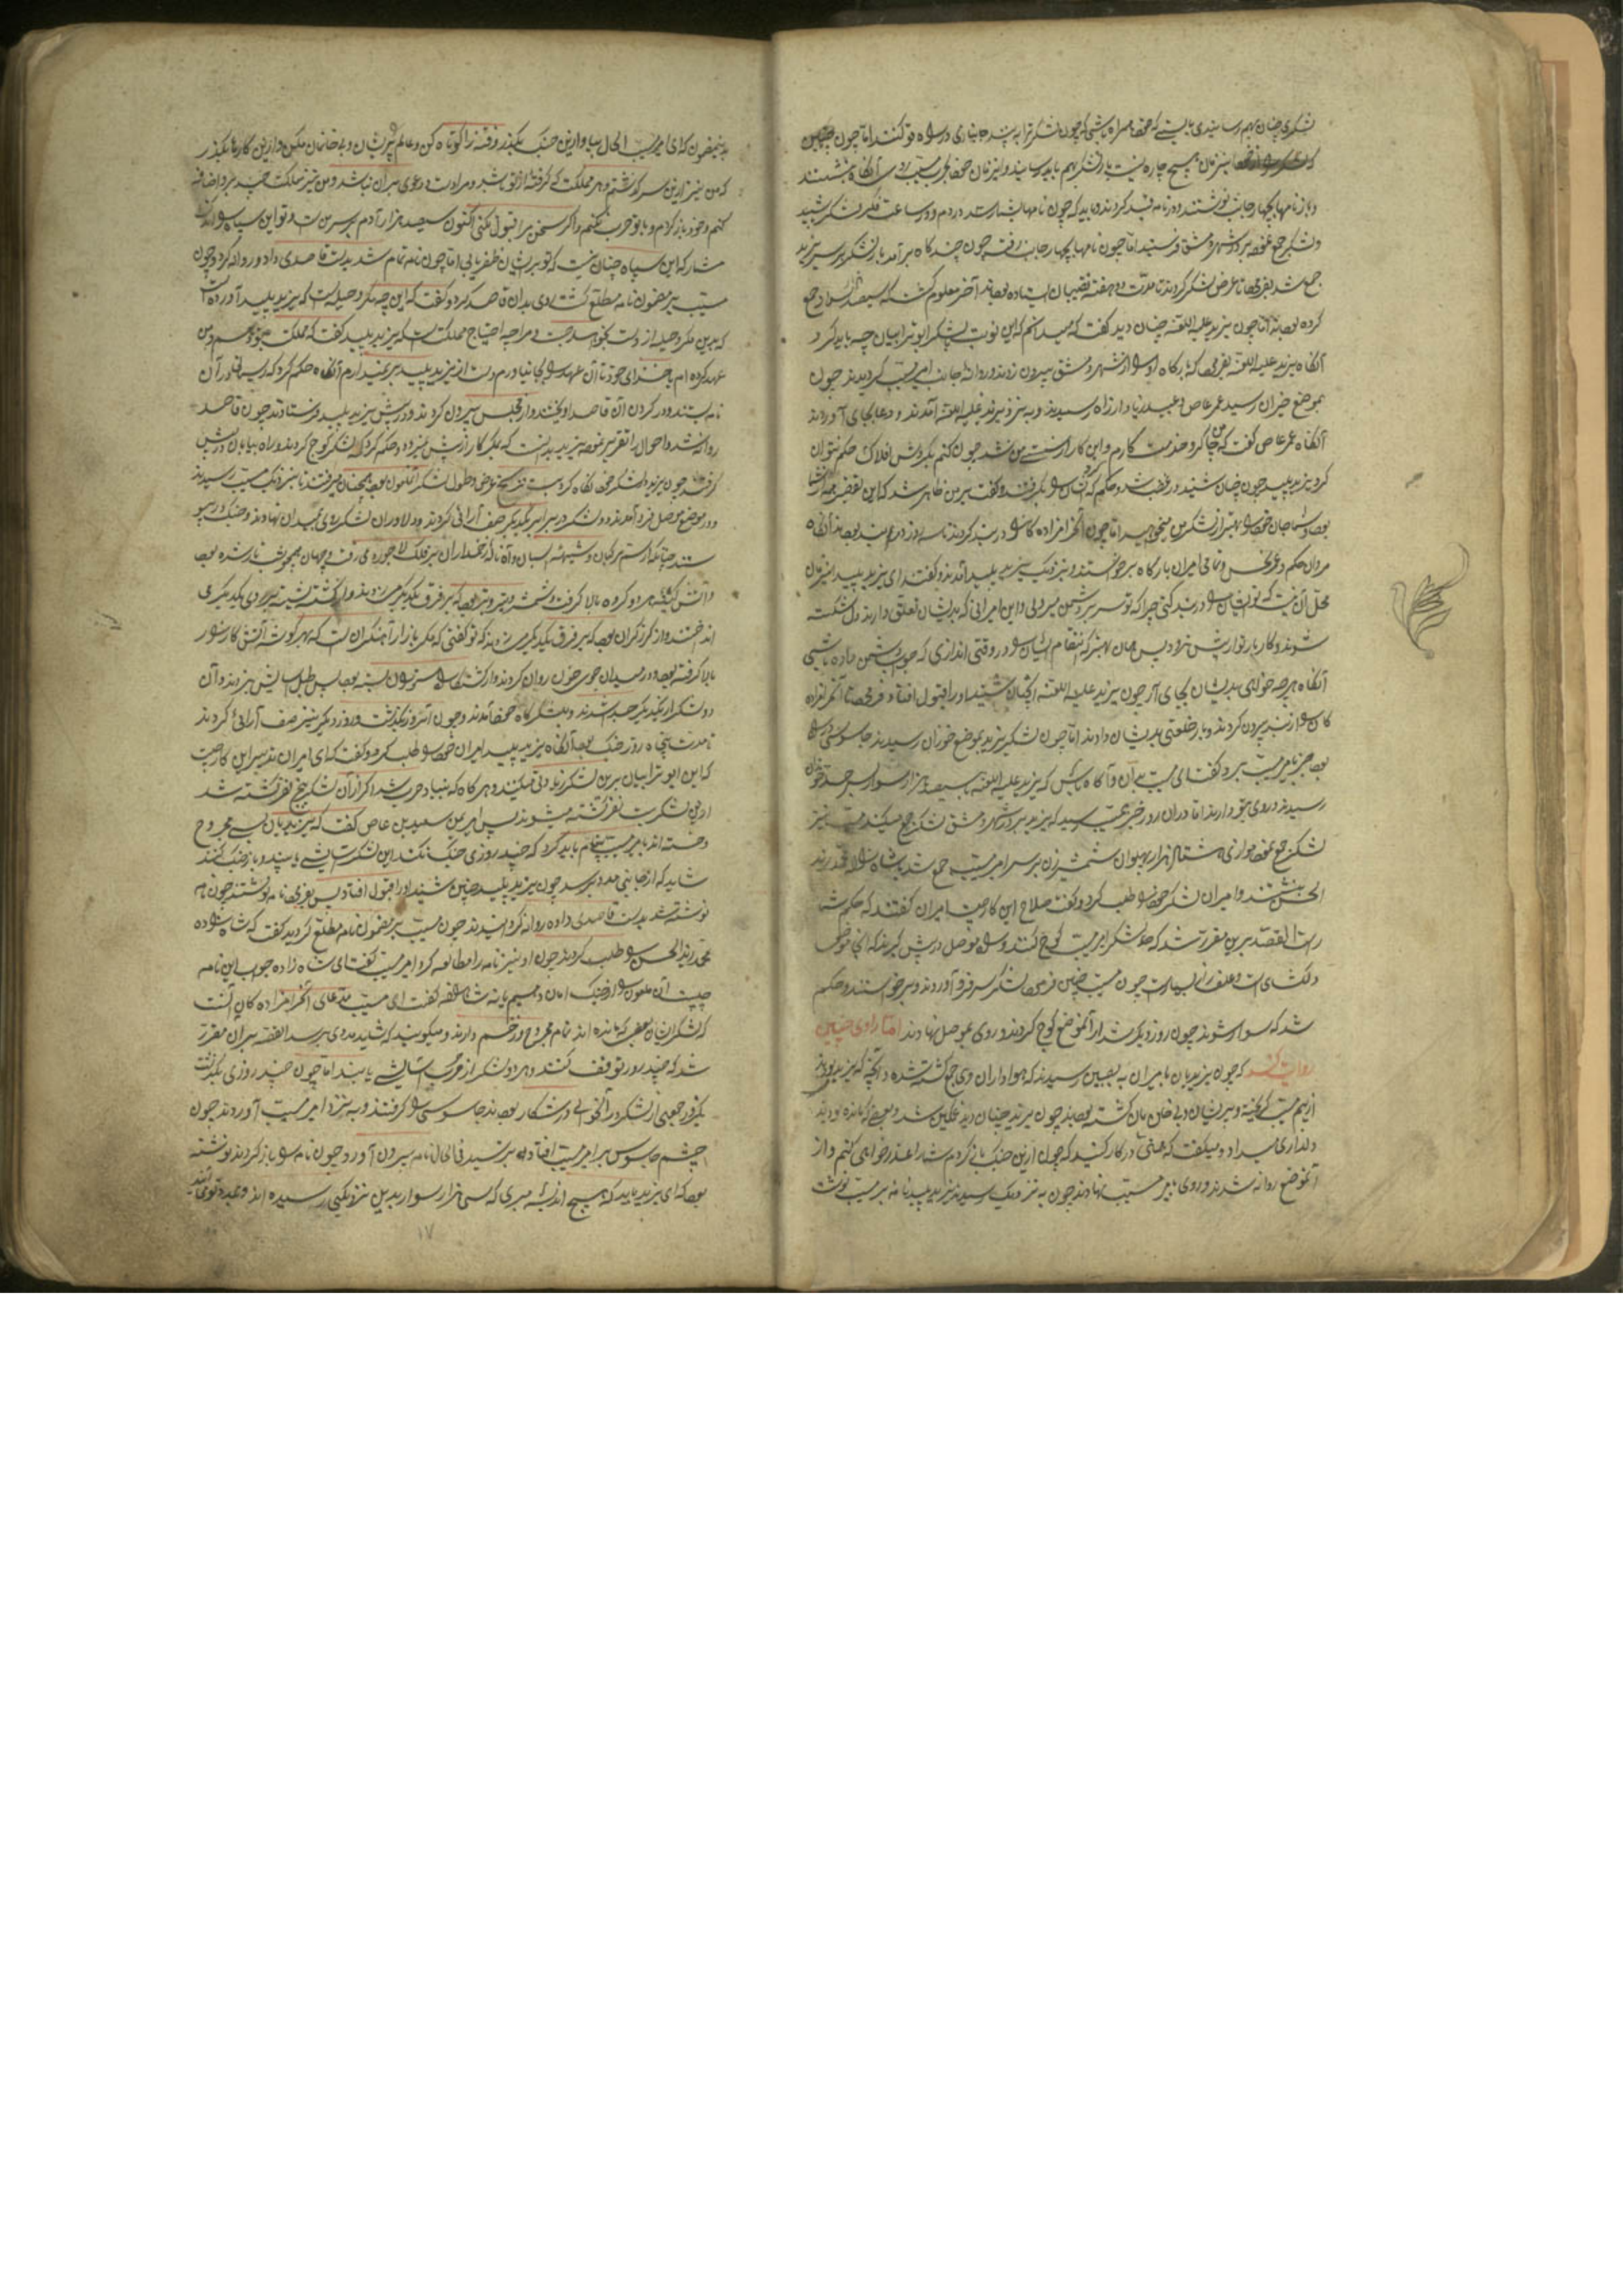 لشکری چنان بهم رسانیدی بایستی که خود همراه باشی که چون لشکر ترا به بیند جانبازی در راه تو کنند اما چون چنین
این زمان هیچ چاره نیست باز لشکر بهم باید رسانید و این زمان خود بجرب مسیب روی آنگاه بنشستند
و باز نامها بچهار جانب نوشتند و در نامه قید کردند باید که چون نامها بشما رسد در دم و در ساعت فکر لشکر بکنید
و لشکر جمع نموده بر در شهر دمشق فرستید اما چون نامها بچهار جانب رفت چون چند گاه برآمد باز لشکر بر سر یزید
جمع شد بفرمود تا عرض لشکر کردند تا مدت دو هفته نقیبان ایستاده بودند آخر معلوم گشت که سیصد هزار سوار جمع
کرده بودند اما چون یزید علیه اللعنه چنان دید گفت که میدانم که این نوبت بلشکر ابوترابیان چه باید کرد
آنگاه یزید علیه اللعنه بفرمود که بارگاه او را از شهر دمشق بیرون زدند و روانه جانب امیر مسیب گردیدند چون
بموضع خیزان رسید عمر عاص و عبید زیاد از راه رسیدند و به نزد یزید علیه اللعنه آمدند و دعا بجای آوردند
آنگاه عمر عاص گفت که من چاکر و خدمت کارم و این کار از دست من نشد چون کنم بگردش افلاک حکم نتوان
کرد یزید پلید چون چنان شنید در غضب شد و حکم کرد که ایشان را بگرفتند و گفت بر من ظاهر شد که این تقصیر همه از شما
بود و شما جان خود را بهتر از لشکر من میخواهید اما چون آن حرامزاده گان را در بند کردند تا سه روز در بند بودند آنگاه
مروان حکم و عمر نحس و باقی امیران بارگاه برخواستند و نزدیک یزید پلید آمدند و گفتند ای یزید پلید این زمان
محل آن نیست که تو ایشان را در بند کنی چرا که تو سر بر دشمن میروی و این امرانی که بدیشان تعلق دارند دل شکسته
شوند و کار بار تو از پیش نرود پس همان بهتر که انتقام ایشان را در وقتی اندازی که جواب دشمن داده باشی
آنگاه هر چه خواهی بدیشان بجای آر چون یزید علیه اللعنه آنچنان شنید او را قبول افتاد و فرمود تا آن حرامزاده
گان را از بند بیرون کردند و باز خلعتی بدیشان دادند اما چون لشکر یزید بموضع خوزان رسیدند جاسوسی در راه
بود خبر بامیر مسیب برد گفت ای مسیب بدان و آگاه باش که یزید علیه اللعنه با سیصد هزار سوار بسرحد خوزان
رسیدند و روی بتو دارند اما در آن روز خبر بمسیب رسید که یزید بر در شهر دمشق لشکر جمع میکند مسیب نیز
لشکر جمع نمود موازی هشتاد هزار پهلوان شمشیر زن بر سر امیر مسیب جمع شد پس شاهزاده محمد زید
الحسن بنشستند و امیران لشکر خود را طلب کرد و گفت صلاح این کار چیست امیران گفتند که حکم شما
راست القصه برین مقرر شد که همه لشکر امیر مسیب کوچ کنند و راه موصل در پیش گیرند که آنجا موضعی
دلگشای است و علف زار بسیار است چون مسیب چنین فرمود لشکر سر فرو آوردند و برخواستند و حکم
شد که سوار شوند چون روز دیگر شد از آن موضع کوچ کردند و روی بموصل نهادند اما راوی چنین
روایت کند که چون یزیدیان با میران به یقین رسیدند که هواداران وی جمع گشته شده و آنچه که یزید بودند
از بیم مسیب گریخته و پریشان و بی خان مان گشته بودند چون یزید چنان دید غمگین شد و بعضی که مانده بودند
دلداری میداد و میگفت که همتی در کار کنید که چون از این جنگ باز گردم شما را عذر خواهی کنم و از
آن موضع روانه شدند و روی بامیر مسیب نهادند چون به نزدیک رسیدند یزید پلید نامه بر مسیب نوشت
بدین مضمون که ای امیر مسیب الحال بیا و از این جنگ بگذر و فتنه را کوتاه کن و عالم پریشان و بی خانمان مکن و از این کارها بگذر
که من نیز از این سر گذشتم و هر مملکت که گرفته از تو باشد و مرا با تو دعوی میران نباشد و من نیز مملکت چند بر او اضافه
کنم و خود باز گردم و با تو حرب نکنم و اگر سخن مرا قبول نکنی اکنون سیصد هزار آدم بر سر من است و تو این سپاه را اندک
مشمار که این سپاه چنان نیست که تو بر ایشان ظفر یابی اما چون نامه تمام شد بدست قاصدی داد و روانه کرد و چون
مسیب بر مضمون نامه مطلع گشت روی بدان قاصد کرد و گفت که این چه مکر و حیله است که یزید پلید آورده است
که بدین مکر و حیله از دست نخواهد جست و مرا چه احتیاج مملکت است که یزید پلید گفت که مملکت بتو دهم و من
عهد کرده ام با خدای خود تا آن عهد را بجا نیاورم دست از یزید پلید بر نمیدارم آنگاه حکم کرد که ریسمانی در آن
نامه بستند و در گردن آن قاصد آویختند و از مجلس بیرون کردند و در پیش یزید پلید فرستادند چون قاصد
روانه شد و احوال را تقریر نمود یزید بدانست که مکر کار از پیش نمیرود حکم کرد که لشکر کوچ کردند و راه بیابان در پیش
گرفتند چون یزید لشکر خود نگاه کرد بیست فرسخ عرض و طول لشکر آن ملعون بود همچنان میرفتند تا به نزدیک مسیب رسیدند
و در موضع موصل فرود آمدند و دو لشکر در برابر یکدیگر صف آرائی کردند و دلاوران لشکر روی بمیدان نهادند و جنگ در پیو
ستند چنانکه از سم مرکبان و شیهه اسبان و آه ناله زخمداران بر فلک لاجوردی رفت و جهان بجوش باز شده بود
و آتش کینه هر دو گروه بالا گرفت و شمشیر و تیر و تبر بود که بر فرق یکدیگر میزدند و از کشته پشته بر روی یکدیگر می
انداختند و از گرز گران بود که بر فرق یکدیگر میزدند که تو گفتی که مگر بازار آهنگران است که بهر گوشه آتش کارزار
بالا گرفته بود و در میدان جوی خون روان کردند و از کشتگان ستون بسته بود پس طبل آسایش زدند و آن
دو لشکر از یکدیگر جدا شدند و بلشکر گاه خود آمدند و چون آن روز بگذشت و روز دیگر نیز صف آرائی کردند
تا مدت پنجاه روز جنگ بود آنگاه یزید پلید امیران خود را طلب کرد و گفت که ای امیران تدبیر این کار چیست
که این ابوترابیان برین لشکر زیادتی میکنند و هر گاه که بنیاد حرب شد اگر از آن لشکر پنج نفر کشته شد
از این لشکر بیست نفر کشته میشوند پس امیر بن سعید بن عاص گفت که یزیدیان بسی مجروح
و خسته اند بامیر مسیب پیغام باید کرد که چند روزی جنگ نکنند این لشکر آسایشی یابند و باز جنگ کنند
شاید که از جانبی مددی برسد چون یزید پلید چنین شنید او را قبول افتاد پس بفرمود نامه نوشتند چون نامه
نوشته شد بدست قاصدی داده روانه گردانیدند چون مسیب بر مضمون نامه مطلع گردید گفت که شاه زاده
محمد زید الحسن را طلب کردند چون او نیز نامه را مطالعه کرد امیر مسیب گفت ای شاه زاده جواب این نامه
چیست آن ملعون را از جنگ امان دهیم یا نه شاهزاده گفت ای مسیب مدعای آن حرامزاده گان آنست
که لشکریان بعضی که مانده اند تمام مجروح و زخم دارند و میگویند که شاید مددی برسد القصه بر آن مقرر
شد که چند روز توقف کنند و هر دو لشکر از حرب آسایشی یابند اما چون چند روزی بگذشت
یکروز جمعی از لشکر در آنحوالی در شکار بودند جاسوسی را گرفتند و به نزد امیر مسیب آوردند چون
چشم جاسوس بر امیر مسیب افتاد بترسید فی الحال نامه بیرون آورد و چون نامه را باز کردند نوشته
بود که ای یزید باید که هیچ اندیشه مبری که سی هزار سوار بدین نزدیکی رسیده اند و بمدد تو می آیند
۱۷